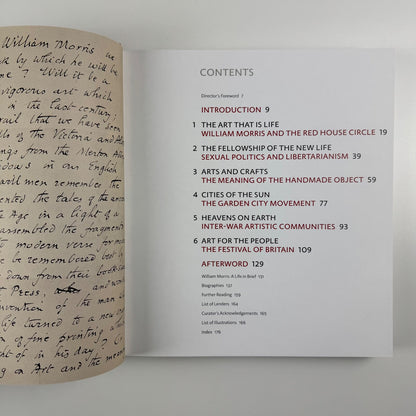 William Morris we
by which he will be
? Will it be a
vigorous art which
in the last century;
that we have been
of the Victoria and Al
ings from the Merton Ab
dows in our English
will men remember the
ented the tales of the an
Age in a light of a
assembled the fragment
modern verse, for ma
be remembered best by
down from their book-s
Press, and a wo
nvention of the man
life turned to a new
of fine printing wh
of in his day? C
on Art and the mea
CONTENTS
Director's Foreword 7
INTRODUCTION 9
1 THE ART THAT IS LIFE
WILLIAM MORRIS AND THE RED HOUSE CIRCLE 19
2 THE FELLOWSHIP OF THE NEW LIFE
SEXUAL POLITICS AND LIBERTARIANISM 39
3 ARTS AND CRAFTS
THE MEANING OF THE HANDMADE OBJECT 59
4 CITIES OF THE SUN
THE GARDEN CITY MOVEMENT 77
5 HEAVENS ON EARTH
INTER-WAR ARTISTIC COMMUNITIES 93
6 ART FOR THE PEOPLE
THE FESTIVAL OF BRITAIN 109
AFTERWORD 129
William Morris: A Life in Brief 131
Biographies 132
Further Reading 159
List of Lenders 164
Curator's Acknowledgements 165
List of Illustrations 166
Index 176